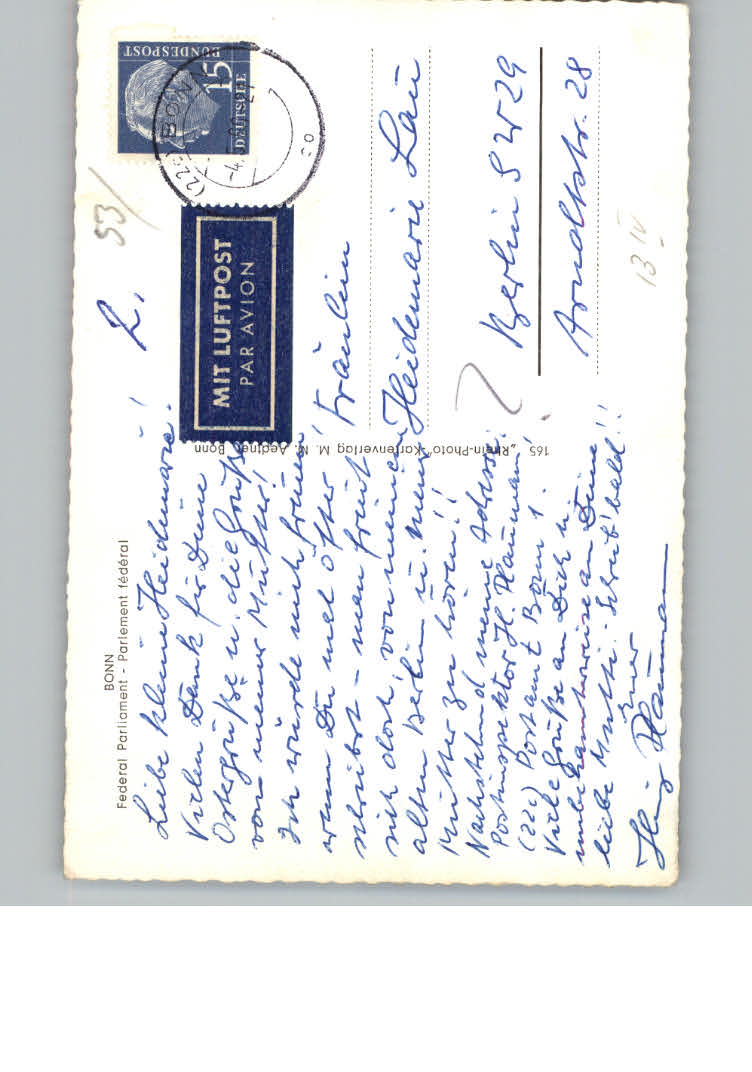 BONN
Federal Parliament - Parlement fédéral
Liebe kleine Heidemarie!
Vielen Dank für Deine
Ostergrüße u. die Grüße
von meiner Mutter!
Ich würde mich freuen
wenn Du mal öfter
schreibst - man freut
sich doch, von meinem
alten Berlin u. meiner
Mutter zu hören!!
Nachstehend meine Adresse:
Postinspektor H. Plaumann
(22c) Postamt Bonn 1.
Viele Grüße an Dich u.
unbekannterweise an Deine
liebe Mutti. - Schreib' bald!!
Euer
Plaumann
165 „Rhein-Photo"-Kartenverlag M. N. Aedtner, Bonn
53/
MIT LUFTPOST
PAR AVION
DEUTSCHE
BUNDESPOST
15
(22c) BONN
Fräulein
Heidemarie Lau
Berlin SW 29
Arndtstr. 28
13 IV